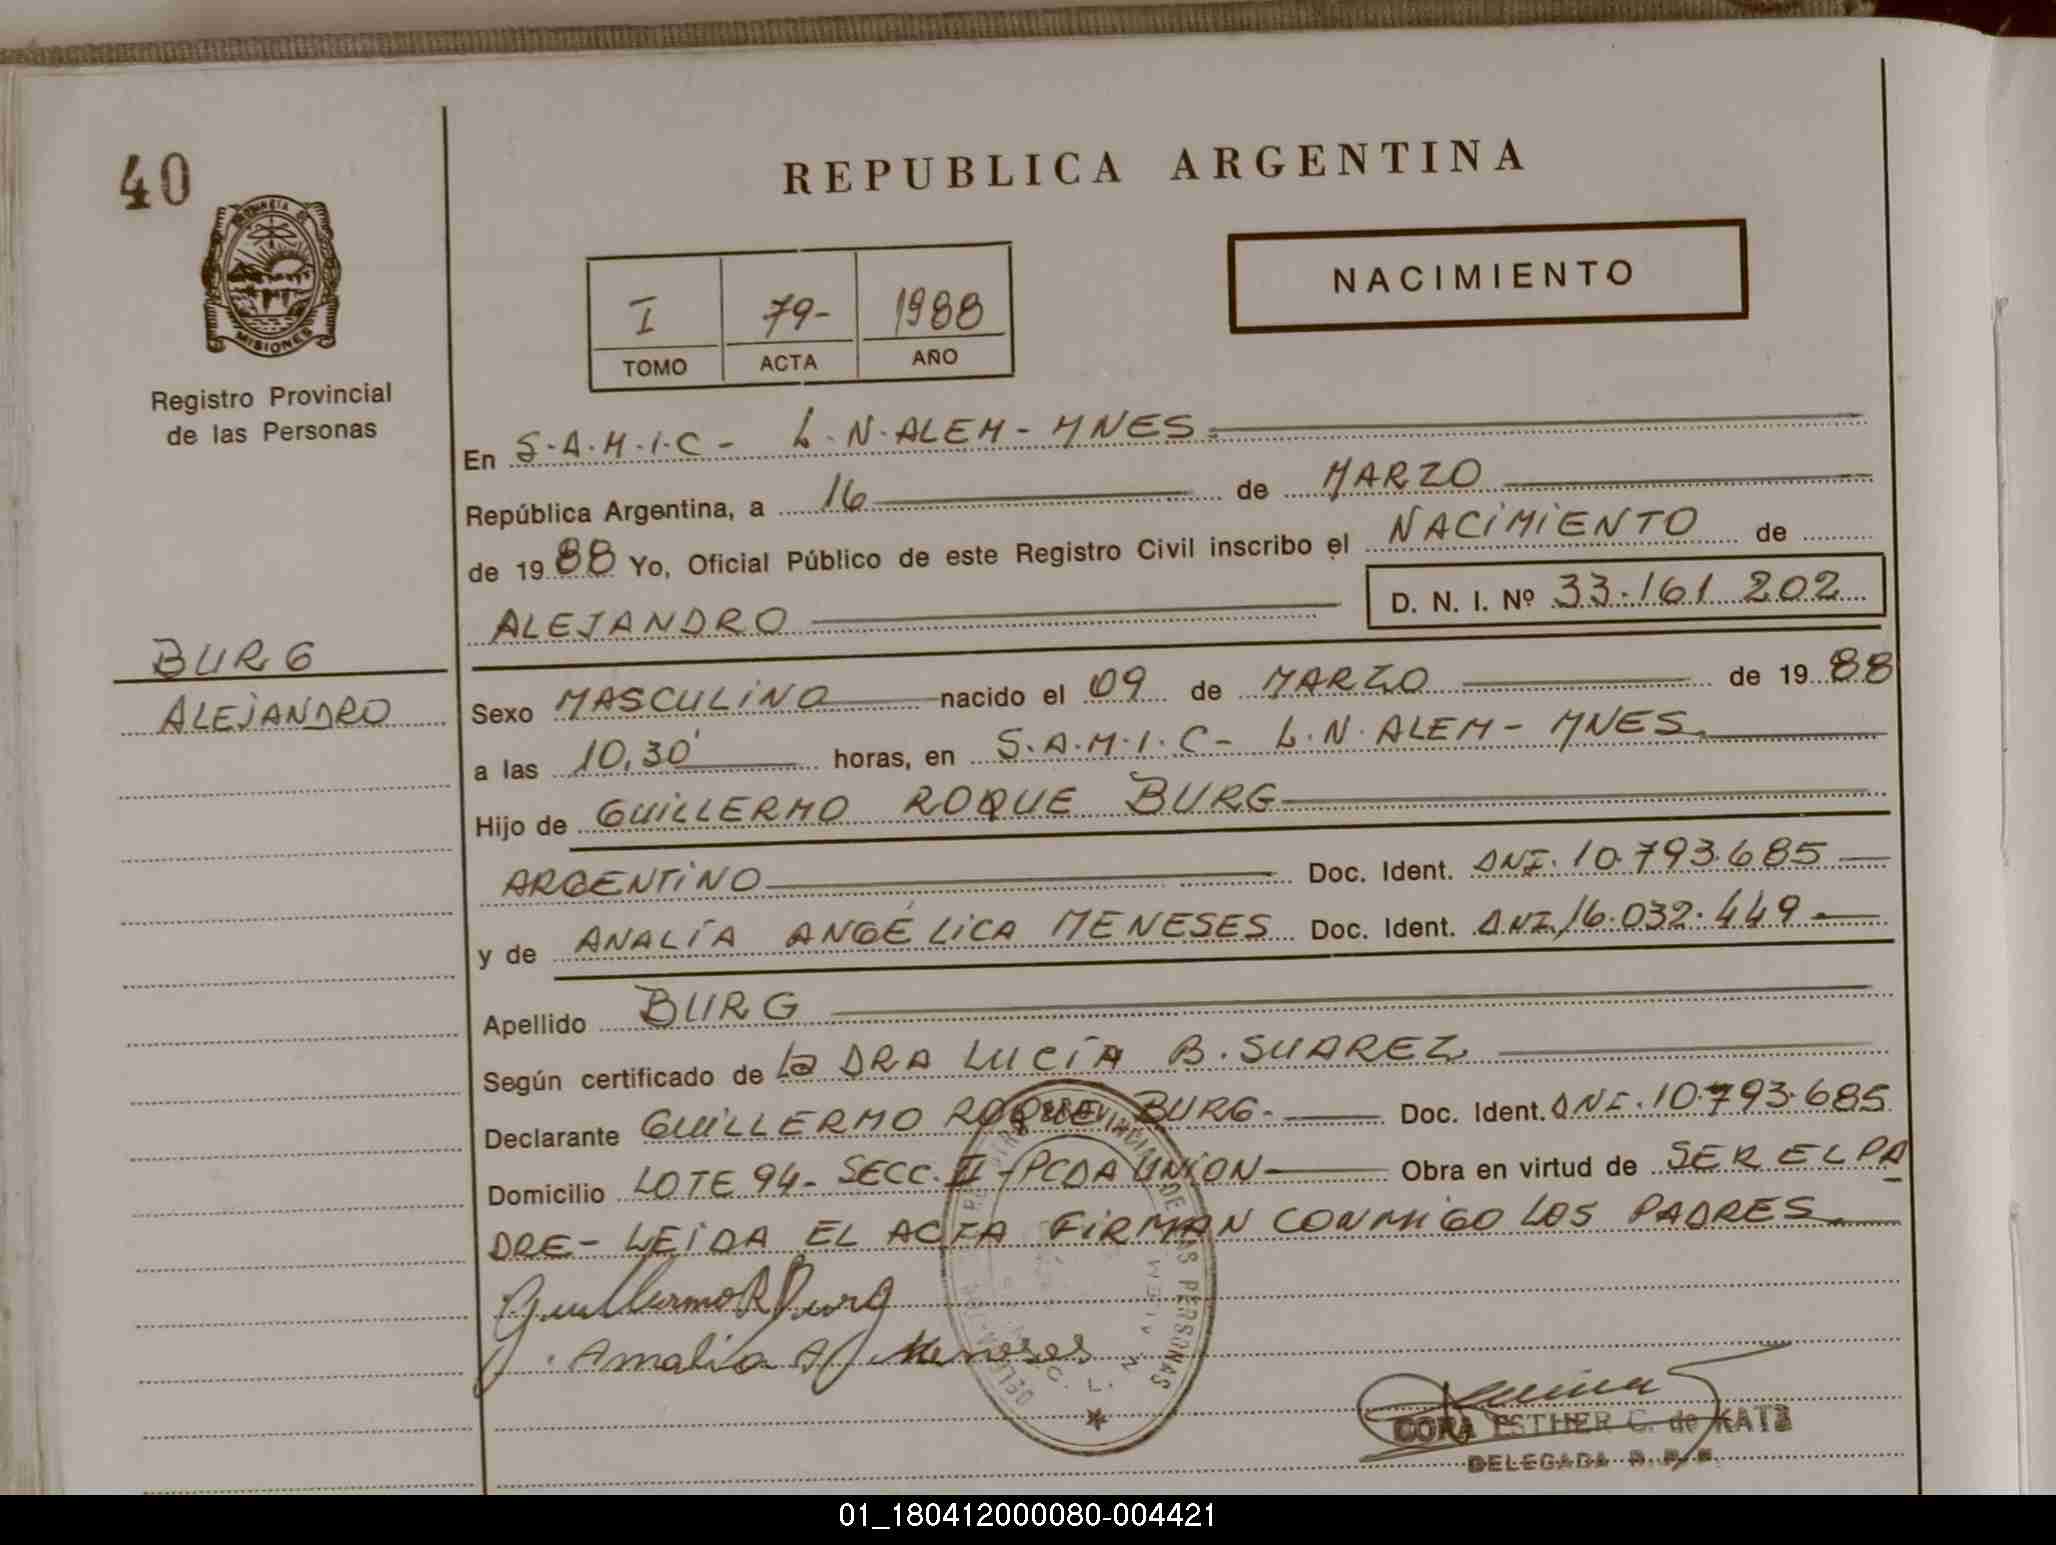 40
PROVINCIA DE
MISIONES
Registro Provincial
de las Personas
REPUBLICA ARGENTINA
I 79- 1988
TOMO ACTA AÑO
NACIMIENTO
En S.A.M.I.C - L.N.ALEM - MNES.
República Argentina, a 16 de MARZO
de 1988 Yo, Oficial Público de este Registro Civil inscribo el NACIMIENTO de
ALEJANDRO D. N. I. Nº 33.161 202
BURG
ALEJANDRO
Sexo MASCULINO nacido el 09 de MARZO de 1988
a las 10,30' horas, en S.A.M.I.C - L.N.ALEM - MNES.
Hijo de GUILLERMO ROQUE BURG
ARGENTINO Doc. Ident. DNI. 10.793.685
y de ANALÍA ANGÉLICA MENESES Doc. Ident. DNI. 16.032.449.
Apellido BURG
Según certificado de la DRA LUCÍA B. SUAREZ
Declarante GUILLERMO ROQUE BURG. Doc. Ident. DNI. 10.793.685
Domicilio LOTE 94- SECC. II - PCDA UNION Obra en virtud de SER EL PA
DRE - LEIDA EL ACTA FIRMAN CONMIGO LOS PADRES
GuillermoRBurg
Amalia A Meneses
DE LAS PERSONAS
DORA ESTHER C. de KATZ
DELEGADA R. P. P.
01_180412000080-004421